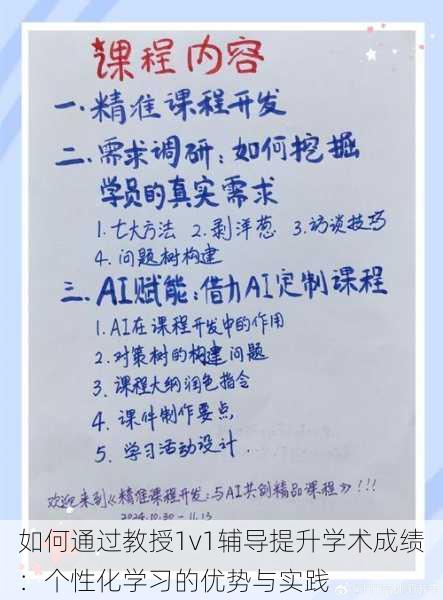 课程内容
一.精准课程开发
二.需求调研:如何挖掘
学员的真实需求
1.七大方法 2.剥洋葱 3.访谈技巧
4.问题树构建
三.AI赋能:借力AI定制课程
1.AI在课程开发中的作用
2.对策树的构建问题
3.课程大纲润色指令
4.课件制作要点
5.学习活动设计
欢迎来到《精准课程开发:与AI共创精品课程》!!!
2024.10.30-11.13
如何通过教授1v1辅导提升学术成绩
:个性化学习的优势与实践